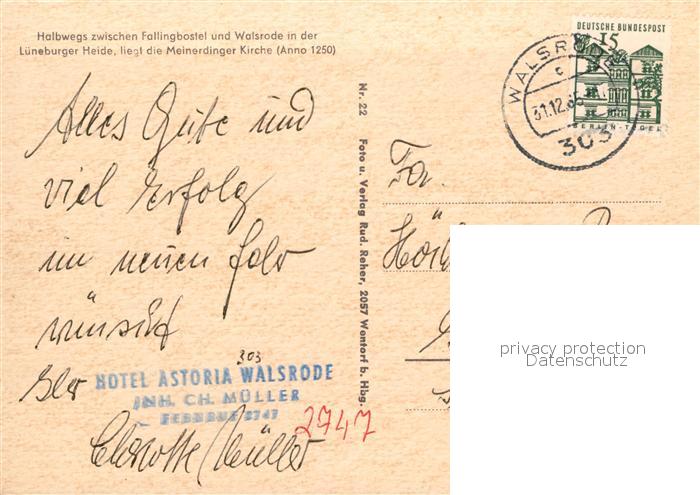 Halbwegs zwischen Fallingbostel und Walsrode in der
Lüneburger Heide, liegt die Meinerdinger Kirche (Anno 1250)
DEUTSCHE BUNDESPOST
15
BERLIN-TEGEL
WALSRODE
c
31.12.65
303
Alles Gute und
viel Erfolg
im neuen Jahr
wünscht
Ihr
303
HOTEL ASTORIA WALSRODE
INH. CH. MÜLLER
FERNRUF 2747
2747
Charlotte Müller
Nr. 22 Foto u. Verlag Rud. Reher, 2057 Wentorf b. Hbg.
Fa.
privacy protection
Datenschutz